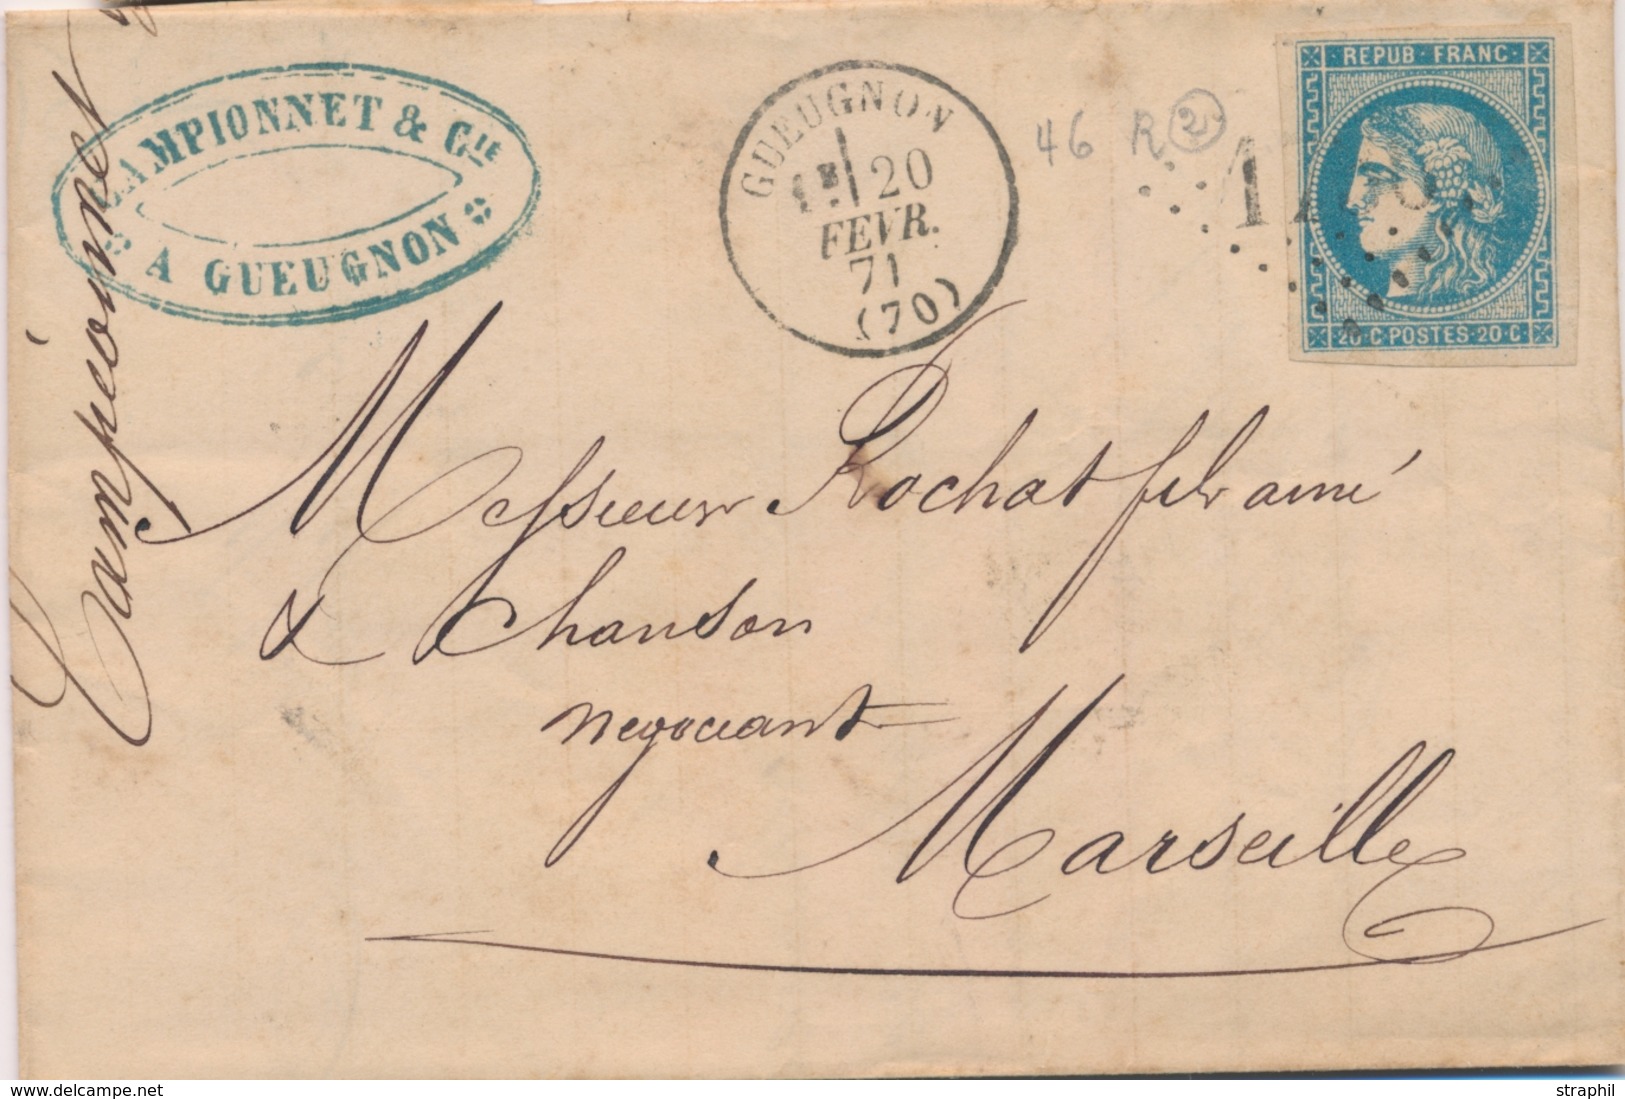 CAMPIONNET & CIE
A GUEUGNON
Campionnet
GUEUGNON
1E 20
FEVR.
71
(70)
46 R 2
REPUB · FRANC ·
20 · C · POSTES · 20 · C ·
Messieurs Rochat fils ainé
& Chanson
negociant
Marseille
www.delcampe.net
straphil